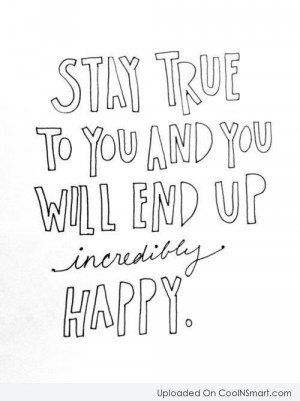 STAY TRUE
TO YOU AND YOU
WILL END UP
incredibly
HAPPY.
Uploaded On CoolNSmart.com